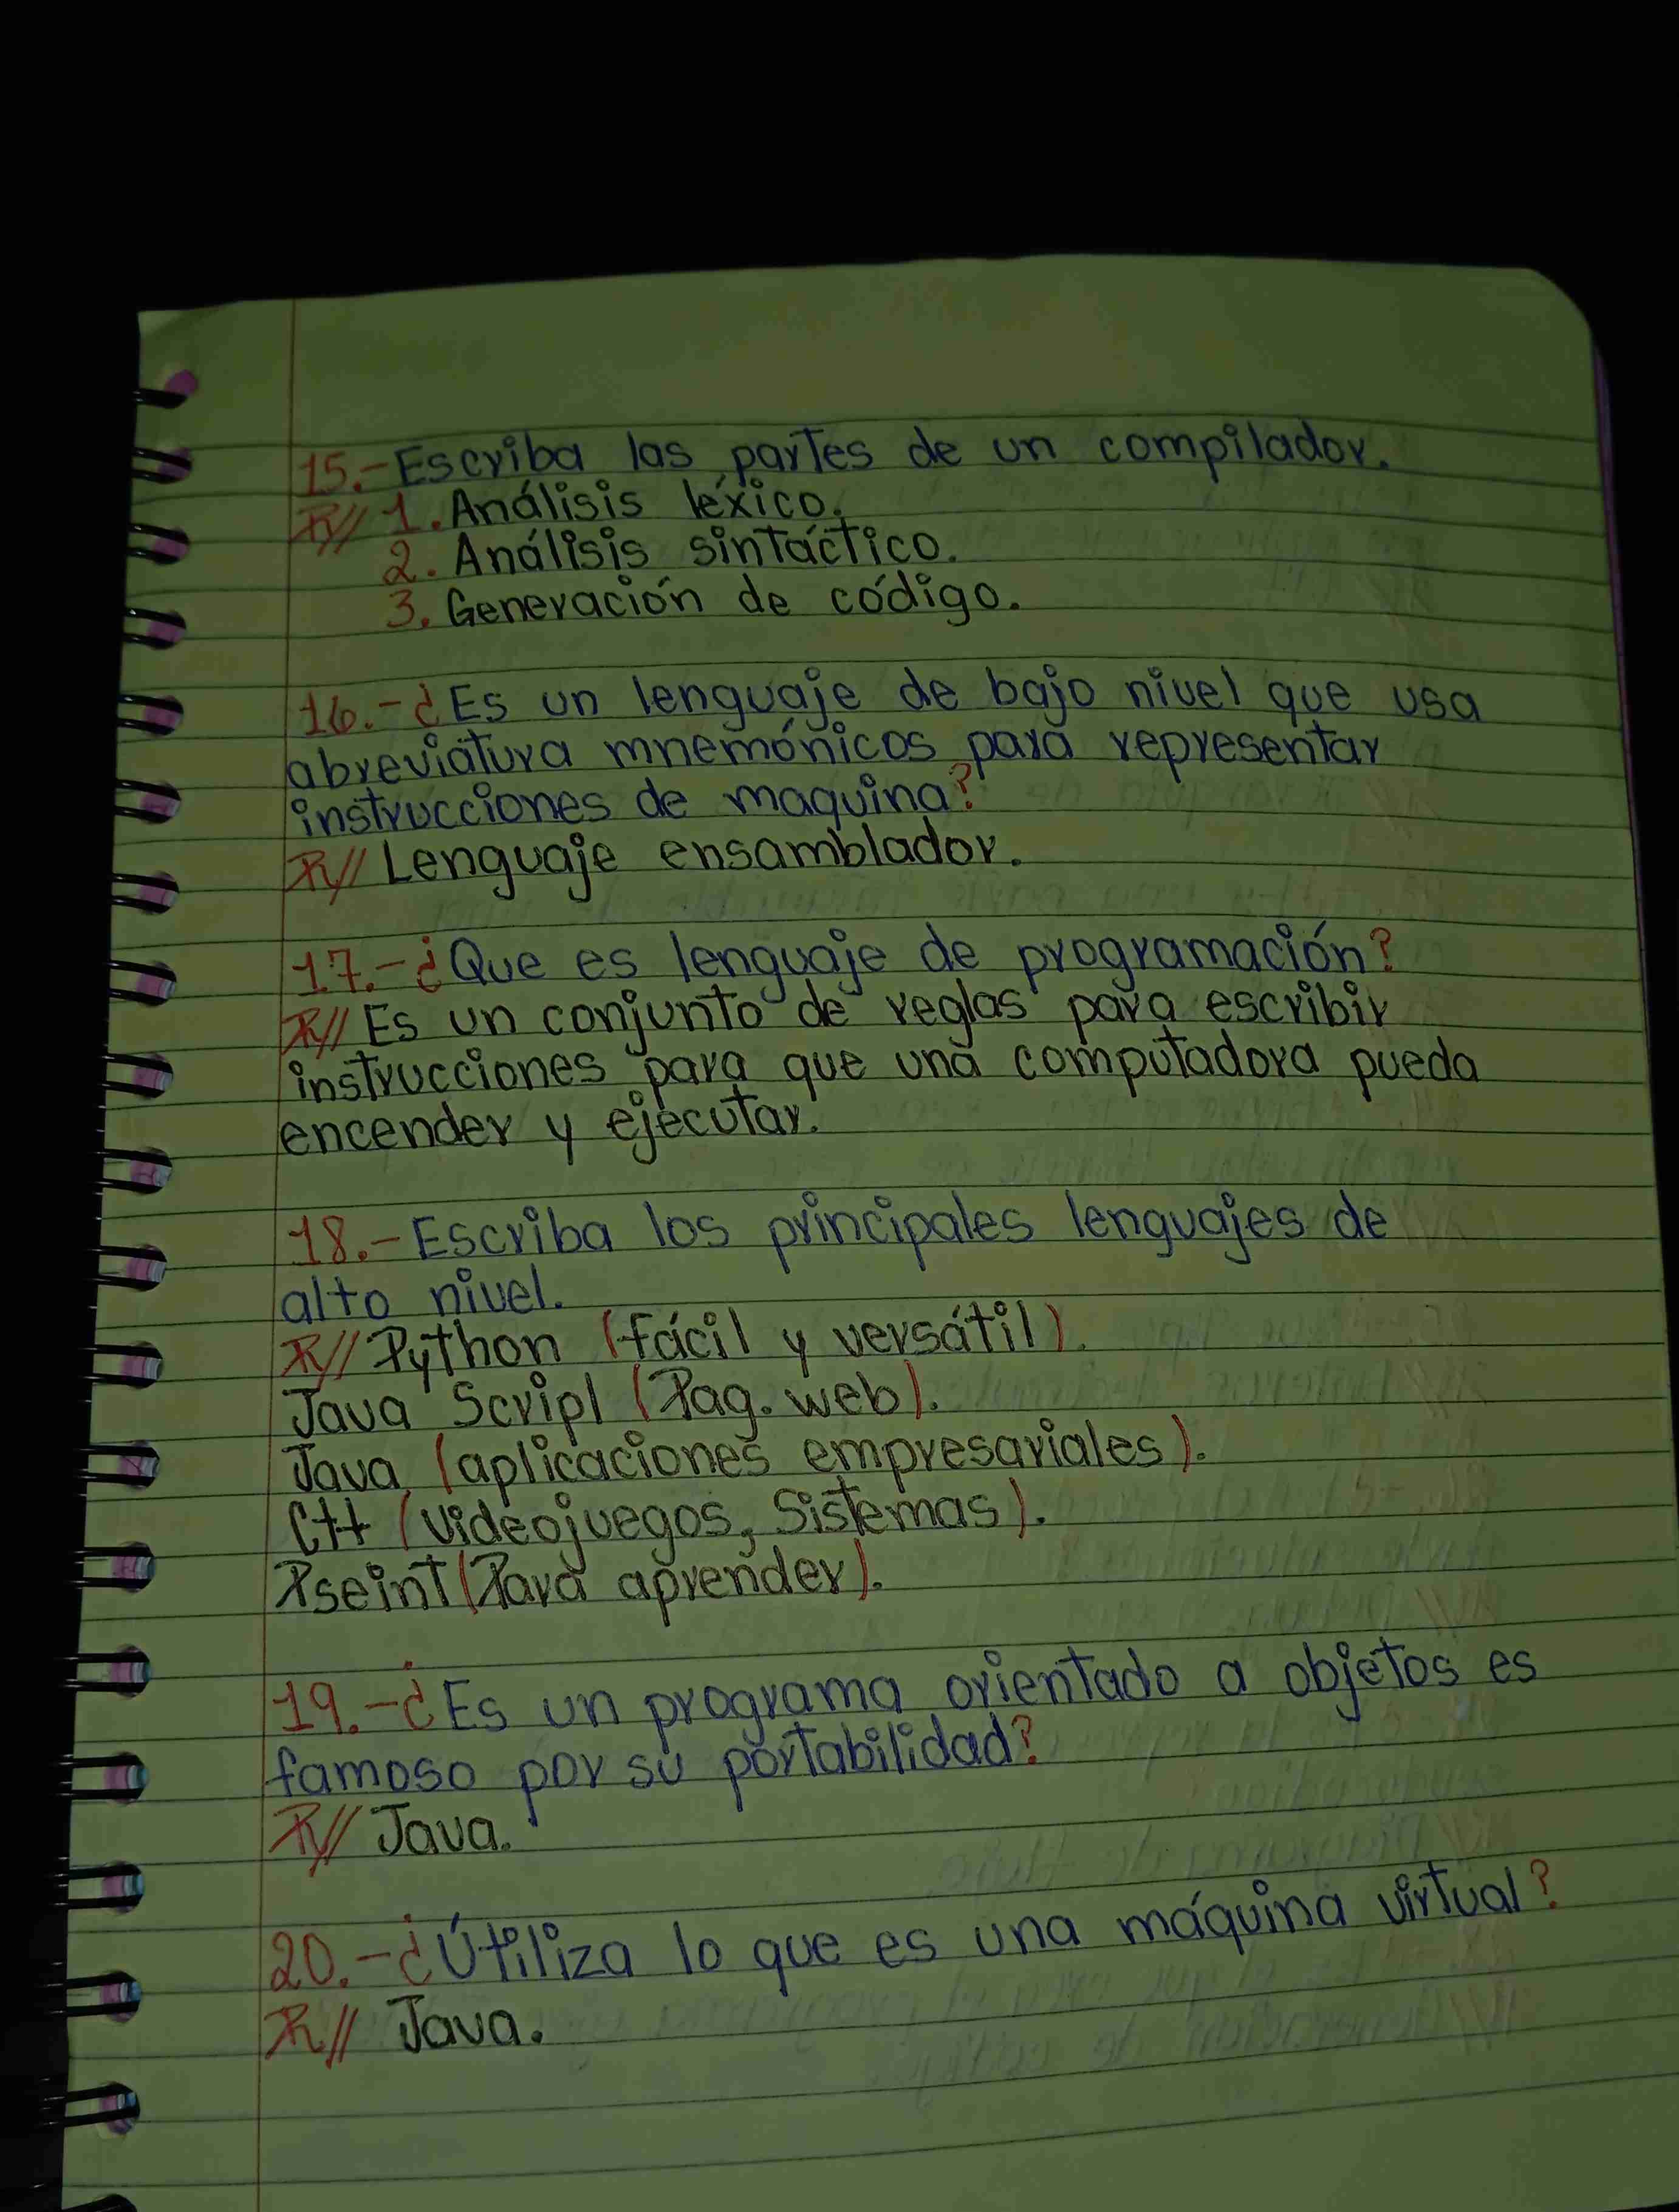 15.- Escriba las partes de un compilador.
R// 1. Análisis léxico.
2. Análisis sintáctico.
3. Generación de código.
16.- ¿Es un lenguaje de bajo nivel que usa
abreviatura mnemónicos para representar
instrucciones de maquina?
R// Lenguaje ensamblador.
17.- ¿Que es lenguaje de programación?
R// Es un conjunto de reglas para escribir
instrucciones para que una computadora pueda
encender y ejecutar.
18.- Escriba los principales lenguajes de
alto nivel.
R// Python (fácil y versátil).
Java Scripl (Pag. web).
Java (aplicaciones empresariales).
C++ (videojuegos, Sistemas).
Pseint (Para aprender).
19.- ¿Es un programa orientado a objetos es
famoso por su portabilidad?
R// Java.
20.- ¿Útiliza lo que es una máquina virtual?
R// Java.